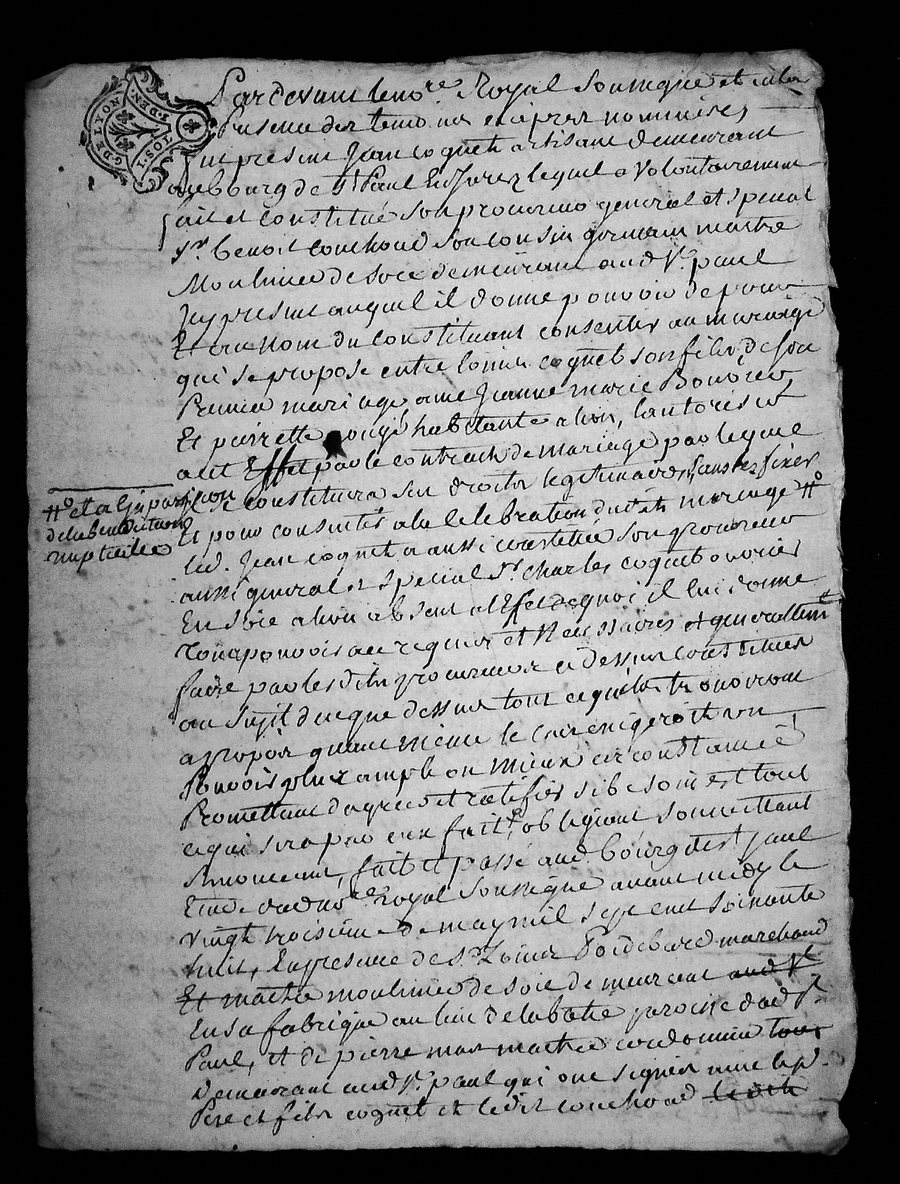 G. DE LYON
1 SOL
P. DEN.
Pardevant le no.re Royal Soussigné et en la
Presence des temoins ci après nommés,
fut présent Jean coquet artisant demeurant
au bourg de s.t Paul En Jarez lequel a volontairement
fait et constitué son procureur general et special
s.r benoit couchoud son cousin germain maitre
Moulinier de soie demeurant aud. s.t paul
icy présent auquel il donne pouvoir de pour
Et au nom du constituant consentir au mariage
qui se propose entre coquet son fils de son
Premier mariage avec Jeanne marie Bouvier
Et pierrette habitante a lion, l'autorise
a cet Effet par le contract de mariage par lequel
il constituera ses droits legitimaires, sans les fixer
Et pour consentir a la celebration dudit mariage #o
#o et a la
de la benediction
nuptialle
led. Jean coquet a aussi constitué son procureur
aussi general et special s.r charles coquet ouvrier
En soie a lion absent a l'Effet de quoi il lui donne
tout pouvoir au requis et necessaires et generallem.t
faire par les dits procureurs ci dessus constitués
au sujet de ce que dessus tout ce qu'ils trouveront
a propos quand même le cas exigeroit un
Pouvoir plus ample ou mieux circonstancié
Promettant d'agreer et ratifier si besoin est tout
ce qui sera par eux fait, obligeant soumettant
renonceant, fait et passé aud. bourg de s.t paul
Etude dud. no.re Royal soussigné avant midy le
vingt troisieme de may mil sept cent soixante
huit, En presence de s.r Poidebard marchand
Et maitre moulinier de soie demeurant aud s.t
En sa fabrique au lieu de la batie paroisse dud. s.t
Paul, et de pierre mas maitre cordonnier tous
Demeurant aud. s.t paul qui ont signés avec les d.
Pere et fils coquet et ledit couchoud ledit